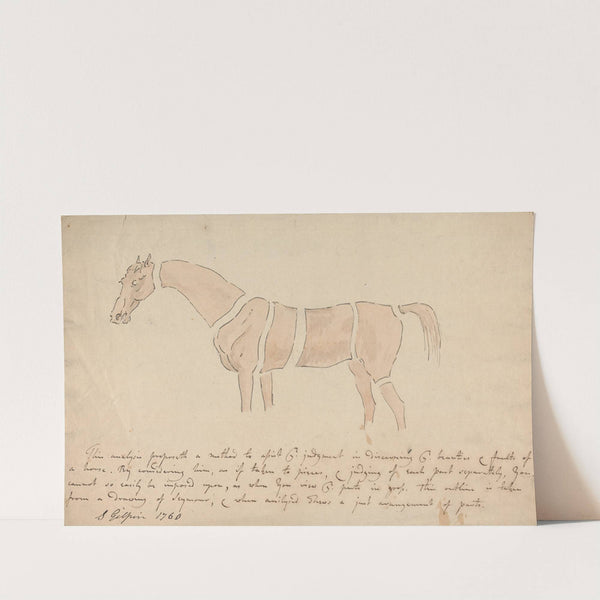 This analysis proposeth a method to assist yͤ judgment in discovering yͤ beauties & faults of
a horse. By considering him, as if taken to pieces, & judging of each part separately, you
cannot so easily be imposed upon, as when you view yͤ parts in gross. This outline is taken
from a drawing of Seymour; & when analysed shews a just arrangement of parts.
S Gilpin 1760